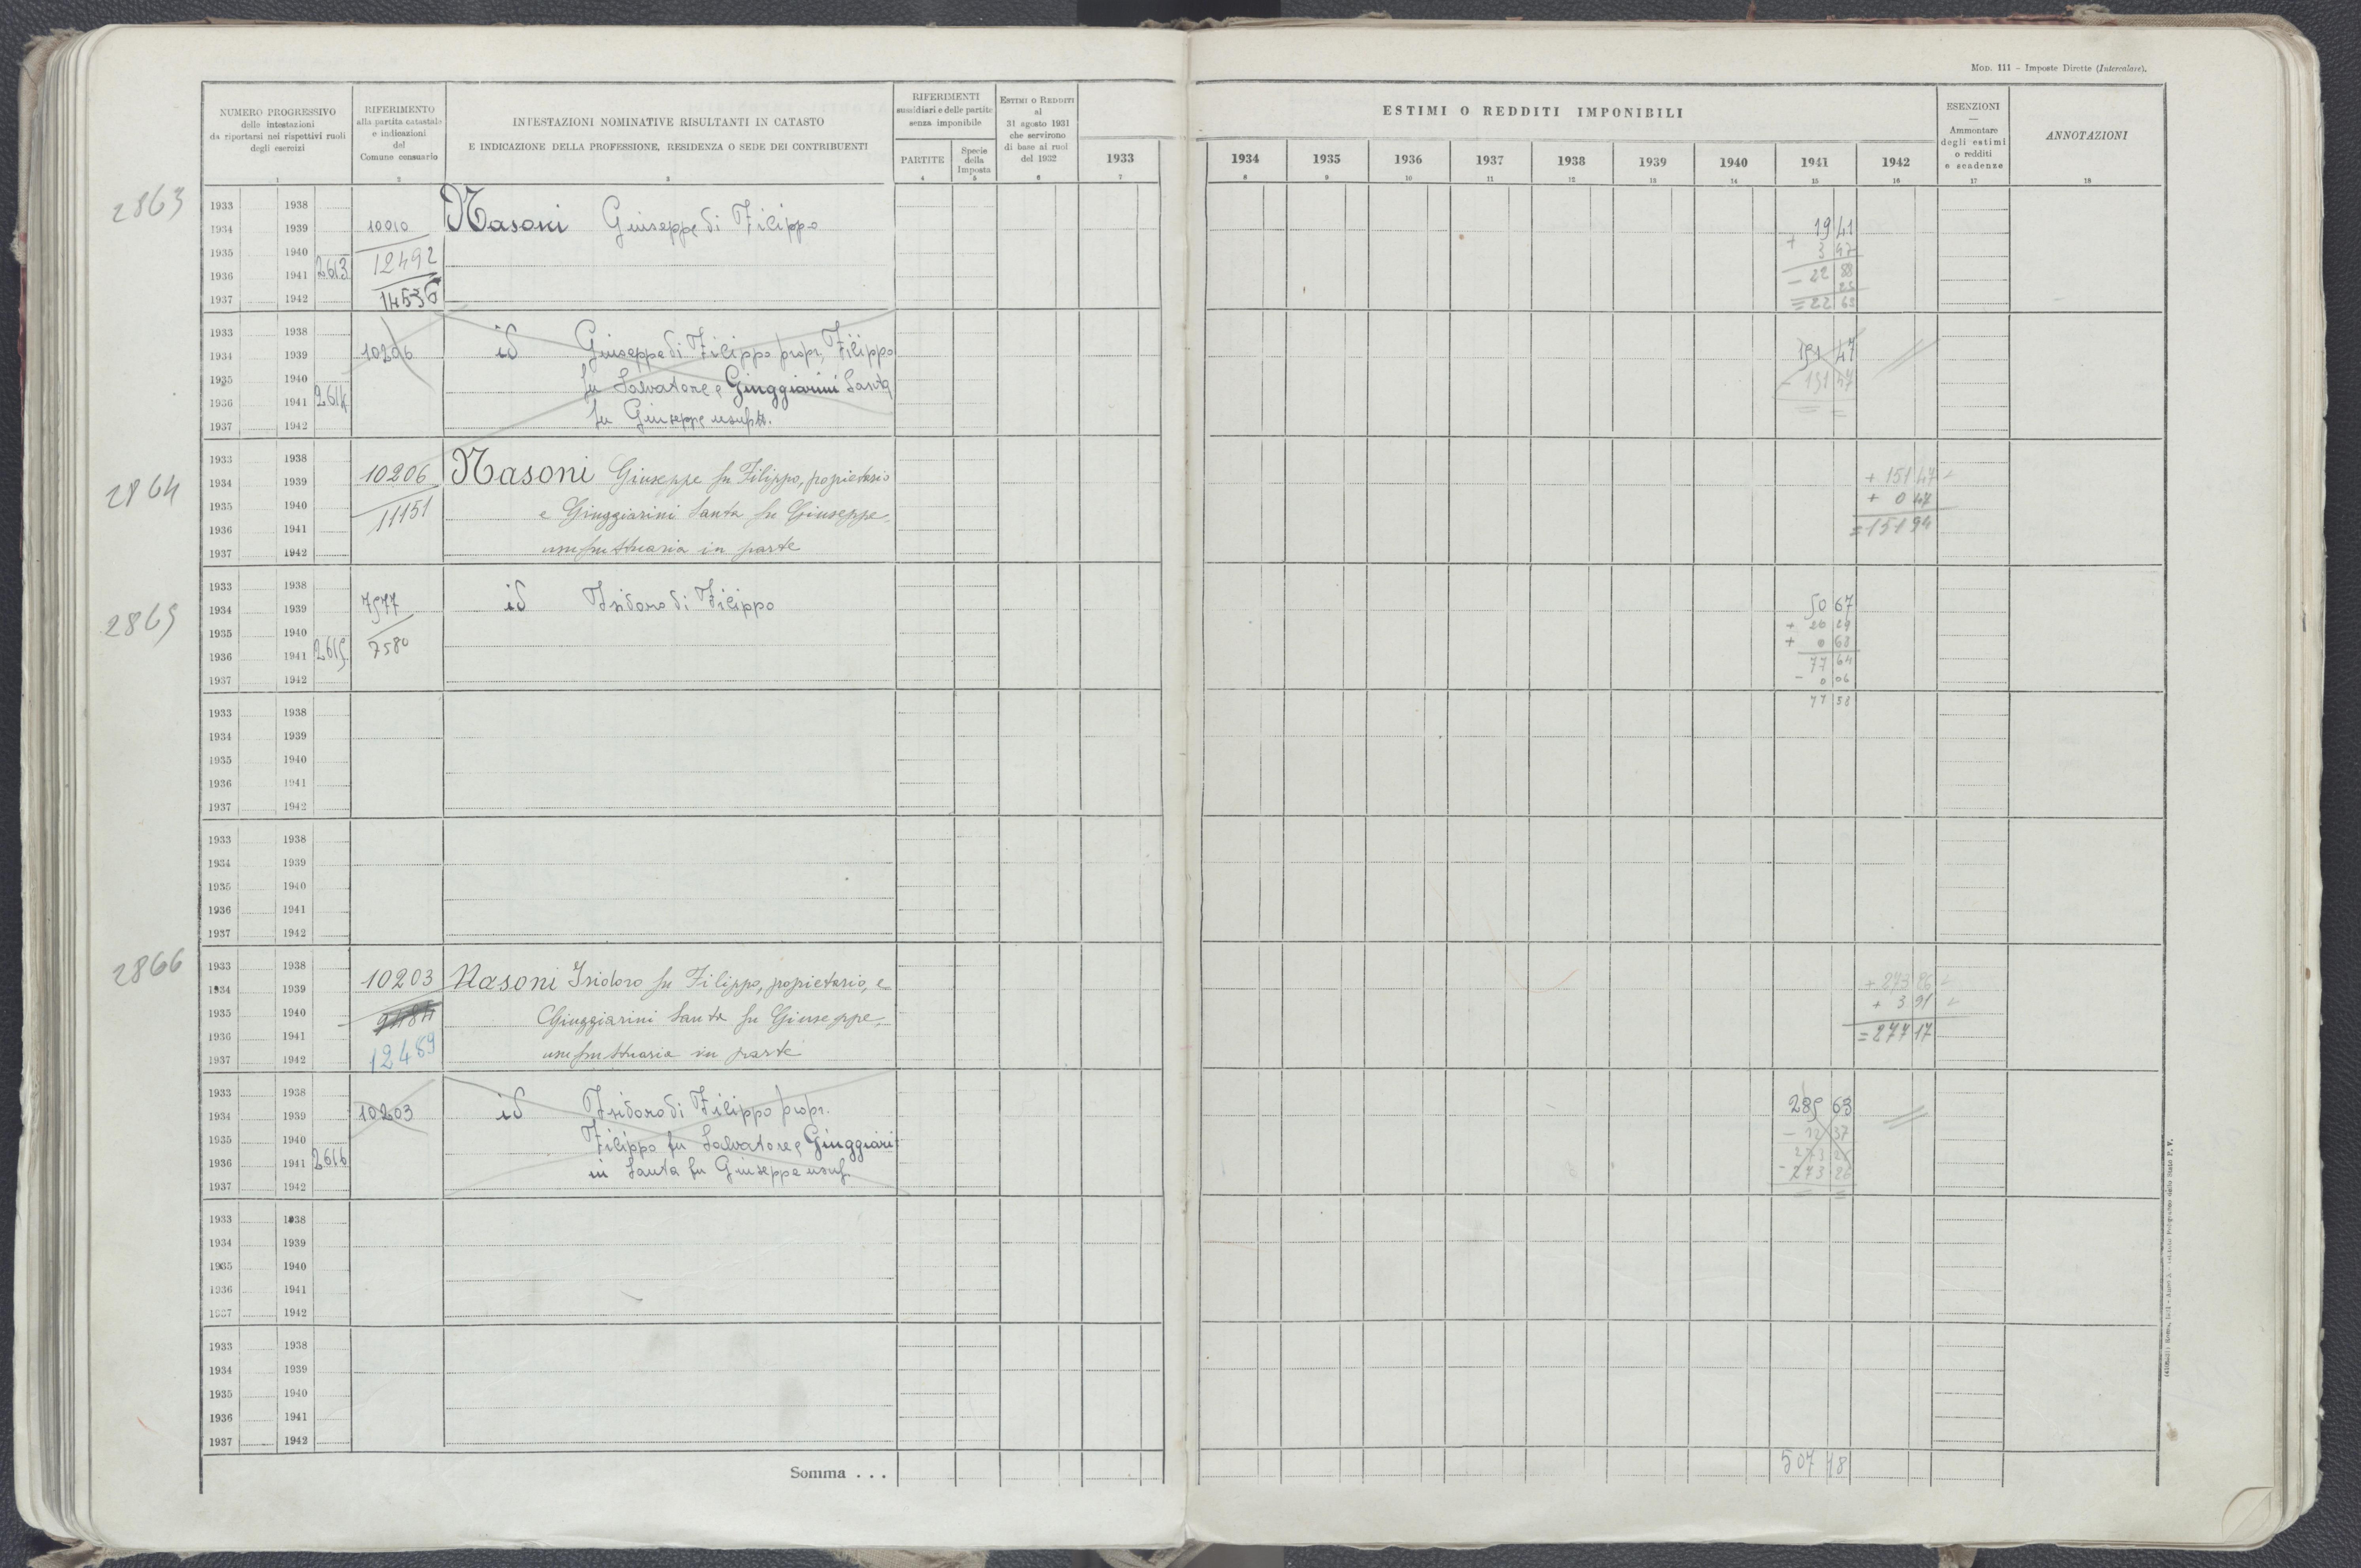 MOD. 111 - Imposte Dirette (Intercalare).
NUMERO PROGRESSIVO
delle intestazioni
da riportarsi nei rispettivi ruoli
degli esercizi
1
RIFERIMENTO
alla partita catastale
e indicazioni
del
Comune censuario
2
INTESTAZIONI NOMINATIVE RISULTANTI IN CATASTO
E INDICAZIONE DELLA PROFESSIONE, RESIDENZA O SEDE DEI CONTRIBUENTI
3
RIFERIMENTI
sussidiari e delle partite
senza imponibile
PARTITE
4
Specie
della
Imposta
5
ESTIMI O REDDITI
al
31 agosto 1931
che servirono
di base ai ruoli
del 1932
6
1933
7
ESTIMI O REDDITI IMPONIBILI
1934 1935 1936 1937 1938 1939 1940 1941 1942
8 9 10 11 12 13 14 15 16
ESENZIONI
Ammontare
degli estimi
o redditi
e scadenze
17
ANNOTAZIONI
18
2863
1933 1938
1934 1939 10010 Nasoni Giuseppe di Filippo 19 41
1935 1940 12492 + 3 47
1936 1941 2613 - 22 88
25
1937 1942 14536 = 22 63
1933 1938
1934 1939 10206 id Giuseppe di Filippo propr, Filippo 151 47
1935 1940 fu Salvatore e Giuggiarini Santa - 151 47
1936 1941 2614
1937 1942 fu Giuseppe usufr.
2864
1933 1938
1934 1939 10206 Nasoni Giuseppe fu Filippo, propietario + 151 47
1935 1940 11151 e Giuggiarini Santa fu Giuseppe, + 0 47
1936 1941 = 151 94
1937 1942 usufruttuaria in parte
2865
1933 1938
1934 1939 7577 id Isidoro di Filippo 50 67
1935 1940 + 26 29
7580 + 0 68
1936 1941 2615 77 64
1937 1942 - 0 06
77 58
1933 1938
1934 1939
1935 1940
1936 1941
1937 1942
1933 1938
1934 1939
1935 1940
1936 1941
1937 1942
2866
1933 1938
1934 1939 10203 Nasoni Isidoro fu Filippo, propietario, e + 273 26
1935 1940 9484 Giuggiarini Santa fu Giuseppe, + 3 91
1936 1941 = 277 17
1937 1942 12489 usufruttuaria in parte
1933 1938
1934 1939 10203 id Isidoro di Filippo propr. 285 63
1935 1940 Filippo fu Salvatore e Giuggiari - 12 37
1936 1941 2616 273 26
ni Santa fu Giuseppe usuf. - 273 26
1937 1942
1933 1938
1934 1939
1935 1940
1936 1941
1937 1942
1933 1938
1934 1939
1935 1940
1936 1941
1937 1942
Somma . . . 507 18